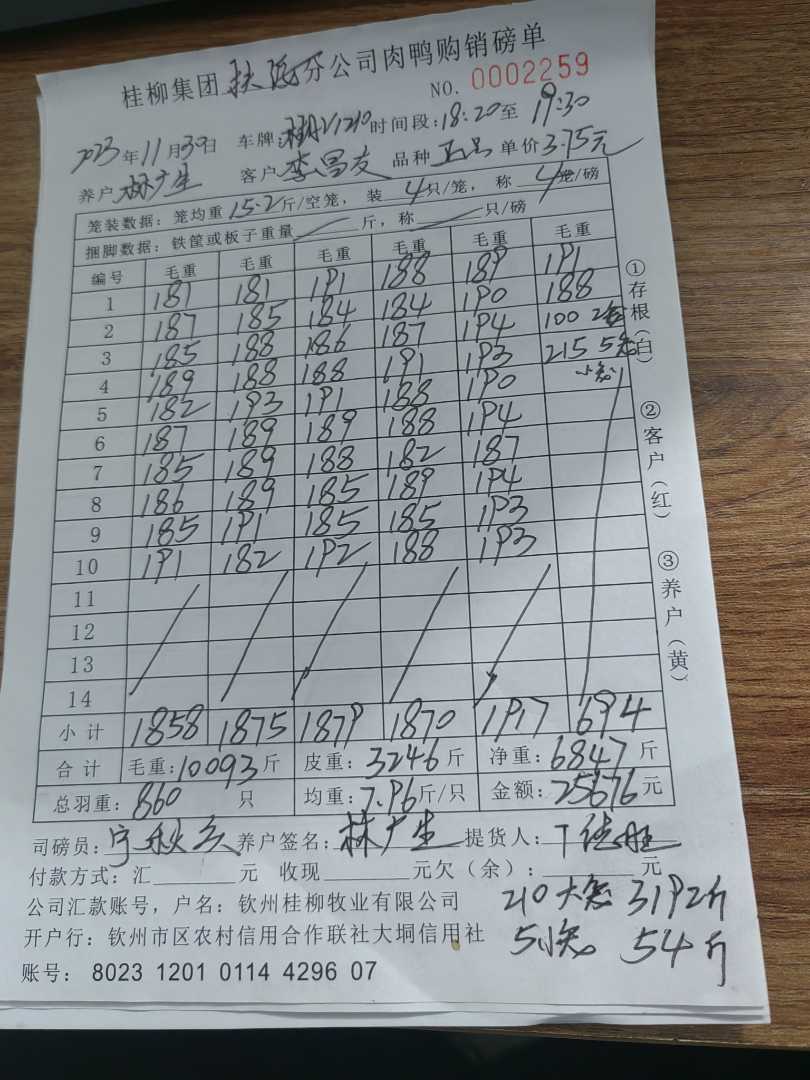 桂柳集团 扶 分公司肉鸭购销磅单
NO. 0002259
2023年11月30日 车牌: 时间段:18:20至19:30
养户 林广生 客户 李昌友 品种 单价3.75元
笼装数据: 笼均重15.2斤/空笼, 装4只/笼, 称4笼/磅
捆脚数据: 铁筐或板子重量 斤, 称 只/磅
编号 毛重 毛重 毛重 毛重 毛重 毛重
1 181 181 191 188 189 191
2 187 185 184 184 190 188
3 185 188 186 187 194 100 2笼
4 189 188 188 191 193 215 5笼
5 182 193 191 188 190 小笼
6 187 189 189 188 194
7 185 189 188 182 187
8 186 189 185 189 194
9 185 191 185 185 193
10 191 182 192 188 193
11
12
13
14
小计 1858 1875 1879 1870 1917 694
合计 毛重:10093斤 皮重:3246斤 净重:6847斤
总羽重:860只 均重:7.96斤/只 金额:25676元
司磅员: 养户签名:林广生 提货人:
付款方式:汇 元 收现 元欠(余): 元
公司汇款账号,户名:钦州桂柳牧业有限公司
开户行:钦州市区农村信用合作联社大垌信用社
账号: 8023 1201 0114 4296 07
210大笼 3192斤
5小笼 54斤
①存根(白)
②客户(红)
③养户(黄)